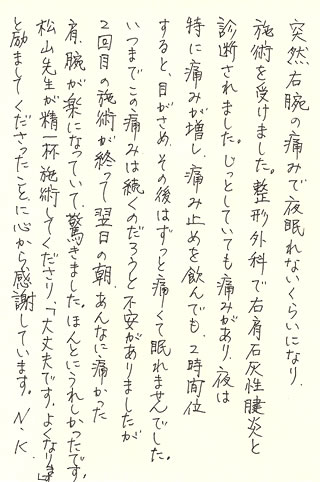 突然右腕の痛みで夜眠れないくらいになり、
施術を受けました。整形外科で右肩石灰性腱炎と
診断されました。じっとしていても痛みがあり、夜は
特に痛みが増し、痛み止めを飲んでも、2時間位
すると、目がさめ、その後はずっと痛くて眠れませんでした。
いつまでこの痛みは続くのだろうと不安がありましたが
2回目の施術が終って翌日の朝、あんなに痛かった
肩、腕が楽になっていて、驚きました。ほんとにうれしかったです。
松山先生が精一杯施術してくださり、「大丈夫です。よくなります」
と励ましてくださったことに心から感謝しています。 N.K.